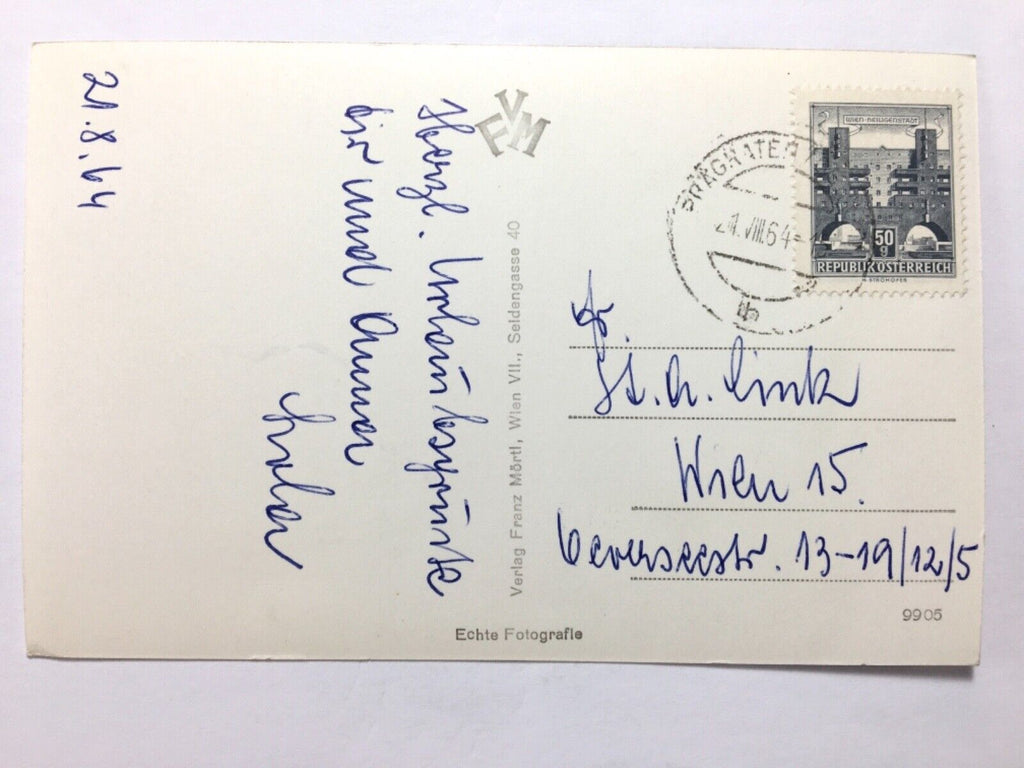 21.8.64
Herzl. Urlaubsgrüße
dir und Anna
FVM
Verlag Franz Mörtl, Wien VII., Seidengasse 40
Echte Fotografie
WIEN-HEILIGENSTADT
50
g
REPUBLIK ÖSTERREICH
PRÄGRATEN
21.VIII.64
b
Fr.
A. Link
Wien 15.
Oeverseestr. 13-19/12/5
9905